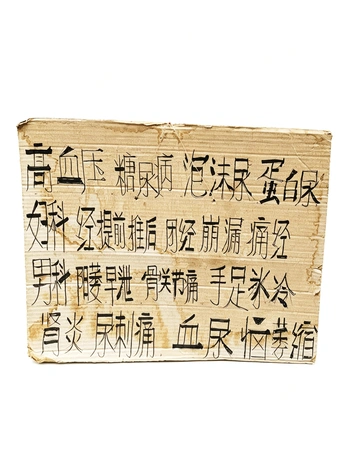 高血压 糖尿病 泡沫尿 蛋白尿
女科 经提前推后 闭经 崩漏 痛经
男科 阳萎早泄 骨关节痛 手足氷冷
肾炎 尿刺痛 血尿 脑萎缩